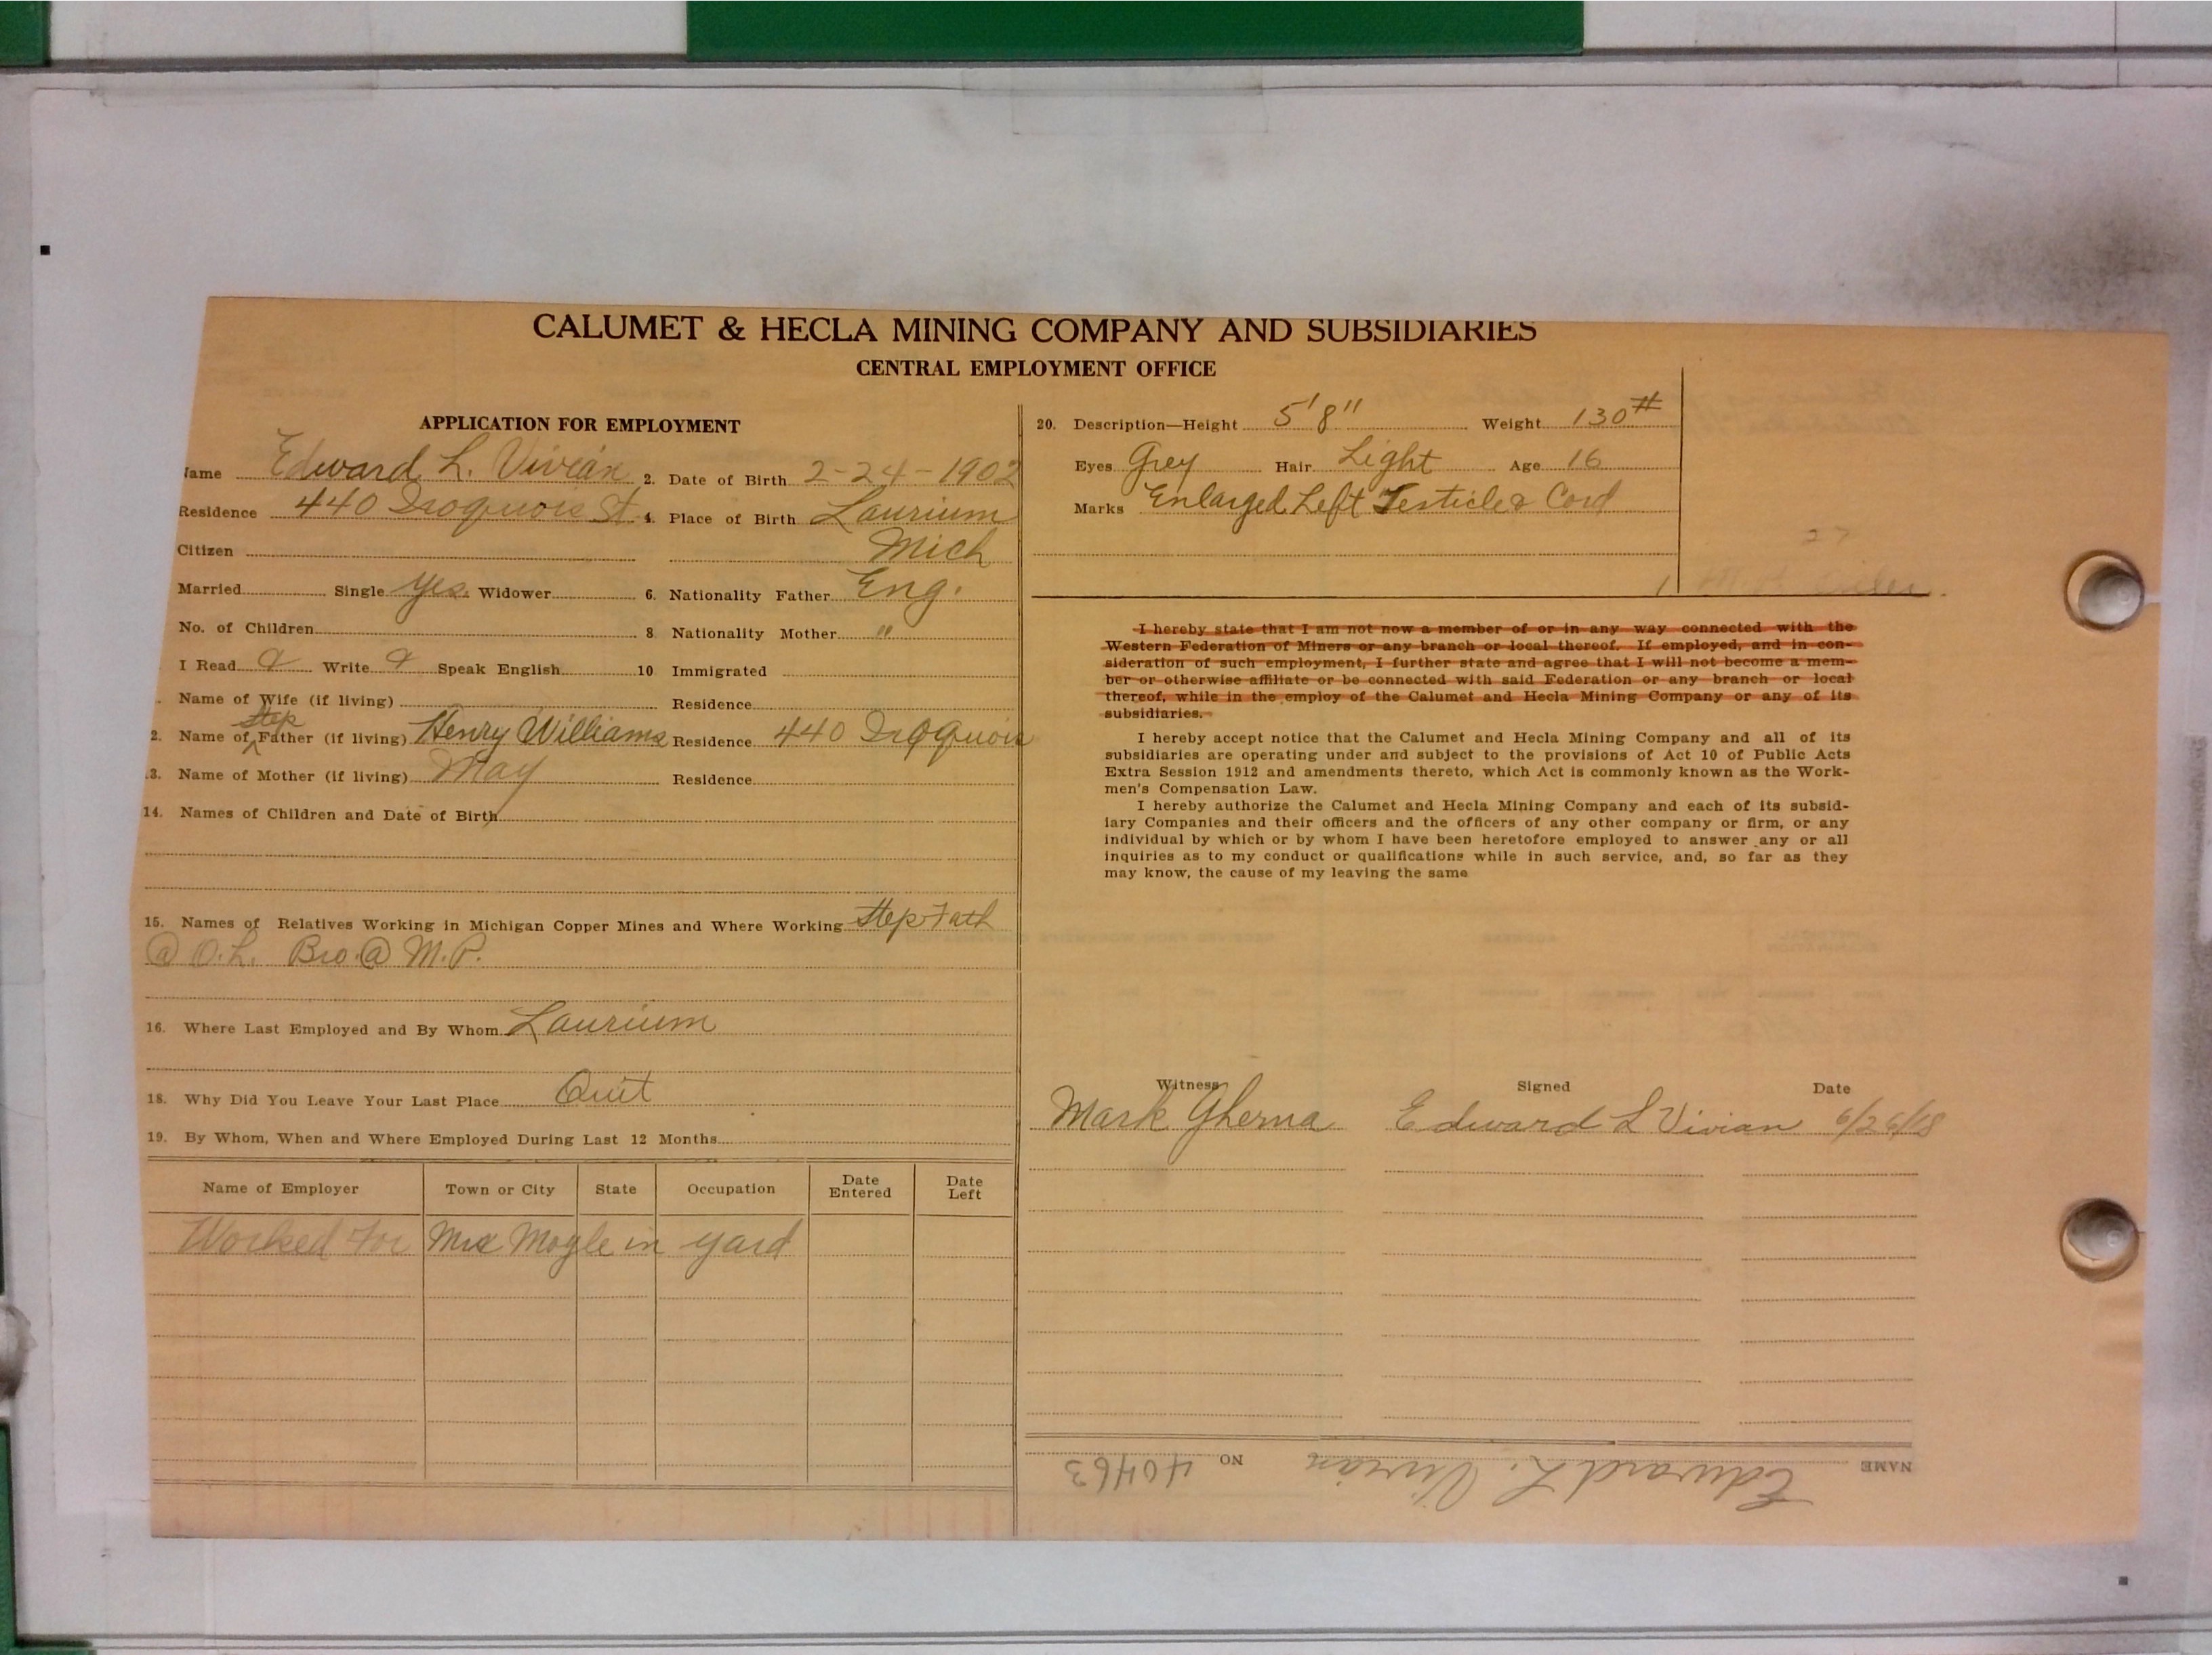 CALUMET & HECLA MINING COMPANY AND SUBSIDIARIES
CENTRAL EMPLOYMENT OFFICE
APPLICATION FOR EMPLOYMENT
Name Edward L. Vivian 2. Date of Birth 2-24-1902
Residence 440 Iroquois St. 4. Place of Birth Laurium
Citizen Mich
Married Single Yes. Widower 6. Nationality Father Eng.
No. of Children 8 Nationality Mother "
I Read Write Speak English 10 Immigrated
Name of Wife (if living) Residence
Step
2. Name of Father (if living) Henry Williams Residence 440 Iroquois
3. Name of Mother (if living) May Residence
14. Names of Children and Date of Birth
15. Names of Relatives Working in Michigan Copper Mines and Where Working Step Fath
@ O.L. Bro. @ M.P.
16. Where Last Employed and By Whom Laurium
18. Why Did You Leave Your Last Place Quit
19. By Whom, When and Where Employed During Last 12 Months
Name of Employer Town or City State Occupation Date Entered Date Left
Worked for Mrs Mogle in yard
20. Description—Height 5'8" Weight 130#
Eyes Grey Hair Light Age 16
Marks Enlarged Left Testicle & Cord
27
I hereby state that I am not now a member of or in any way connected with the
Western Federation of Miners or any branch or local thereof. If employed, and in con-
sideration of such employment, I further state and agree that I will not become a mem-
ber or otherwise affiliate or be connected with said Federation or any branch or local
thereof, while in the employ of the Calumet and Hecla Mining Company or any of its
subsidiaries.
I hereby accept notice that the Calumet and Hecla Mining Company and all of its
subsidiaries are operating under and subject to the provisions of Act 10 of Public Acts
Extra Session 1912 and amendments thereto, which Act is commonly known as the Work-
men's Compensation Law.
I hereby authorize the Calumet and Hecla Mining Company and each of its subsid-
iary Companies and their officers and the officers of any other company or firm, or any
individual by which or by whom I have been heretofore employed to answer any or all
inquiries as to my conduct or qualifications while in such service, and, so far as they
may know, the cause of my leaving the same
Witness Signed Date
Mark Gherna Edward L Vivian 6/26/18
NAME Edward L. Vivian NO 40463